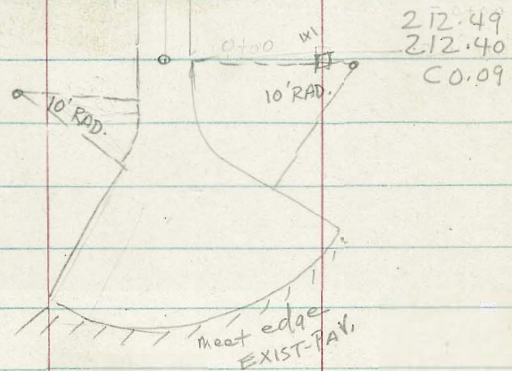 212.49
0+00
212.40
C0.09
10'RAD.
10'RAD.
meet edge
EXIST-PAV.